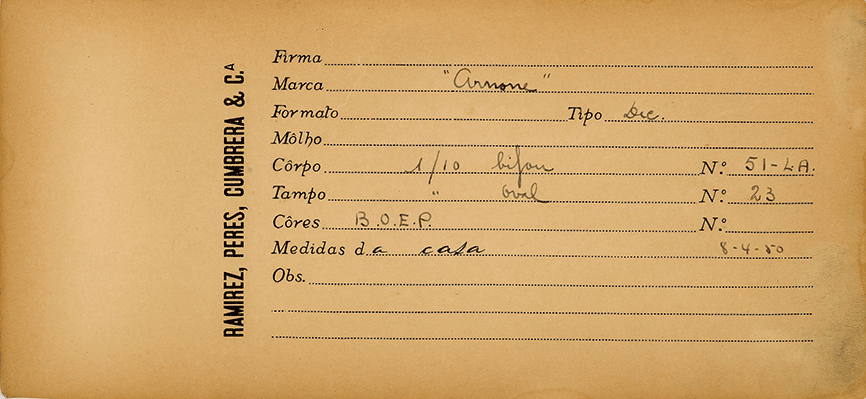 RAMIREZ, PERES, CUMBRERA & C.ᴬ
Firma
Marca "Arnone"
Formato Tipo Dec.
Môlho
Côrpo 1/10 bijou N.º 51-LA.
Tampo " oval N.º 23
Côres B.O.E.P. N.º
Medidas da casa 8-4-50
Obs.